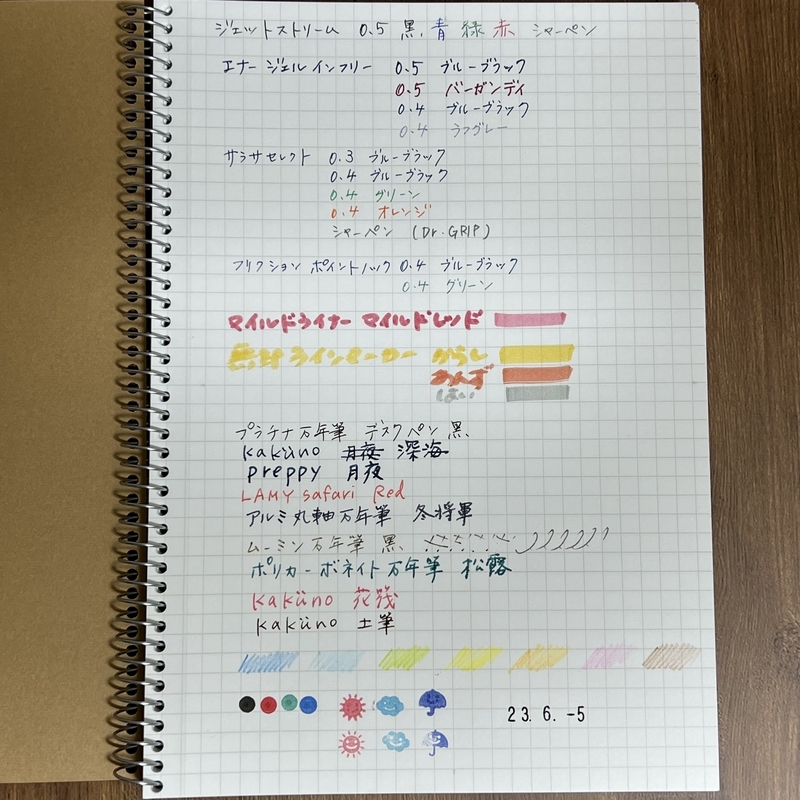 ジェットストリーム 0.5 黒 青 緑 赤 シャーペン
エナージェルインフリー 0.5 ブルーブラック
0.5 バーガンディ
0.4 ブルーブラック
0.4 ラフグレー
サラサセレクト 0.3 ブルーブラック
0.4 ブルーブラック
0.4 グリーン
0.4 オレンジ
シャーペン (Dr.GRIP)
フリクションポイントノック 0.4 ブルーブラック
0.4 グリーン
マイルドライナー マイルドレッド
無印ラインマーカー からし
あんず
はい
プラチナ万年筆 デスクペン 黒
kaküno 月夜 深海
preppy 月夜
LAMY safari Red
アルミ丸軸万年筆 冬将軍
ムーミン万年筆 黒
ポリカーボネイト万年筆 松露
kaküno 花筏
kaküno 土筆
23.6.-5